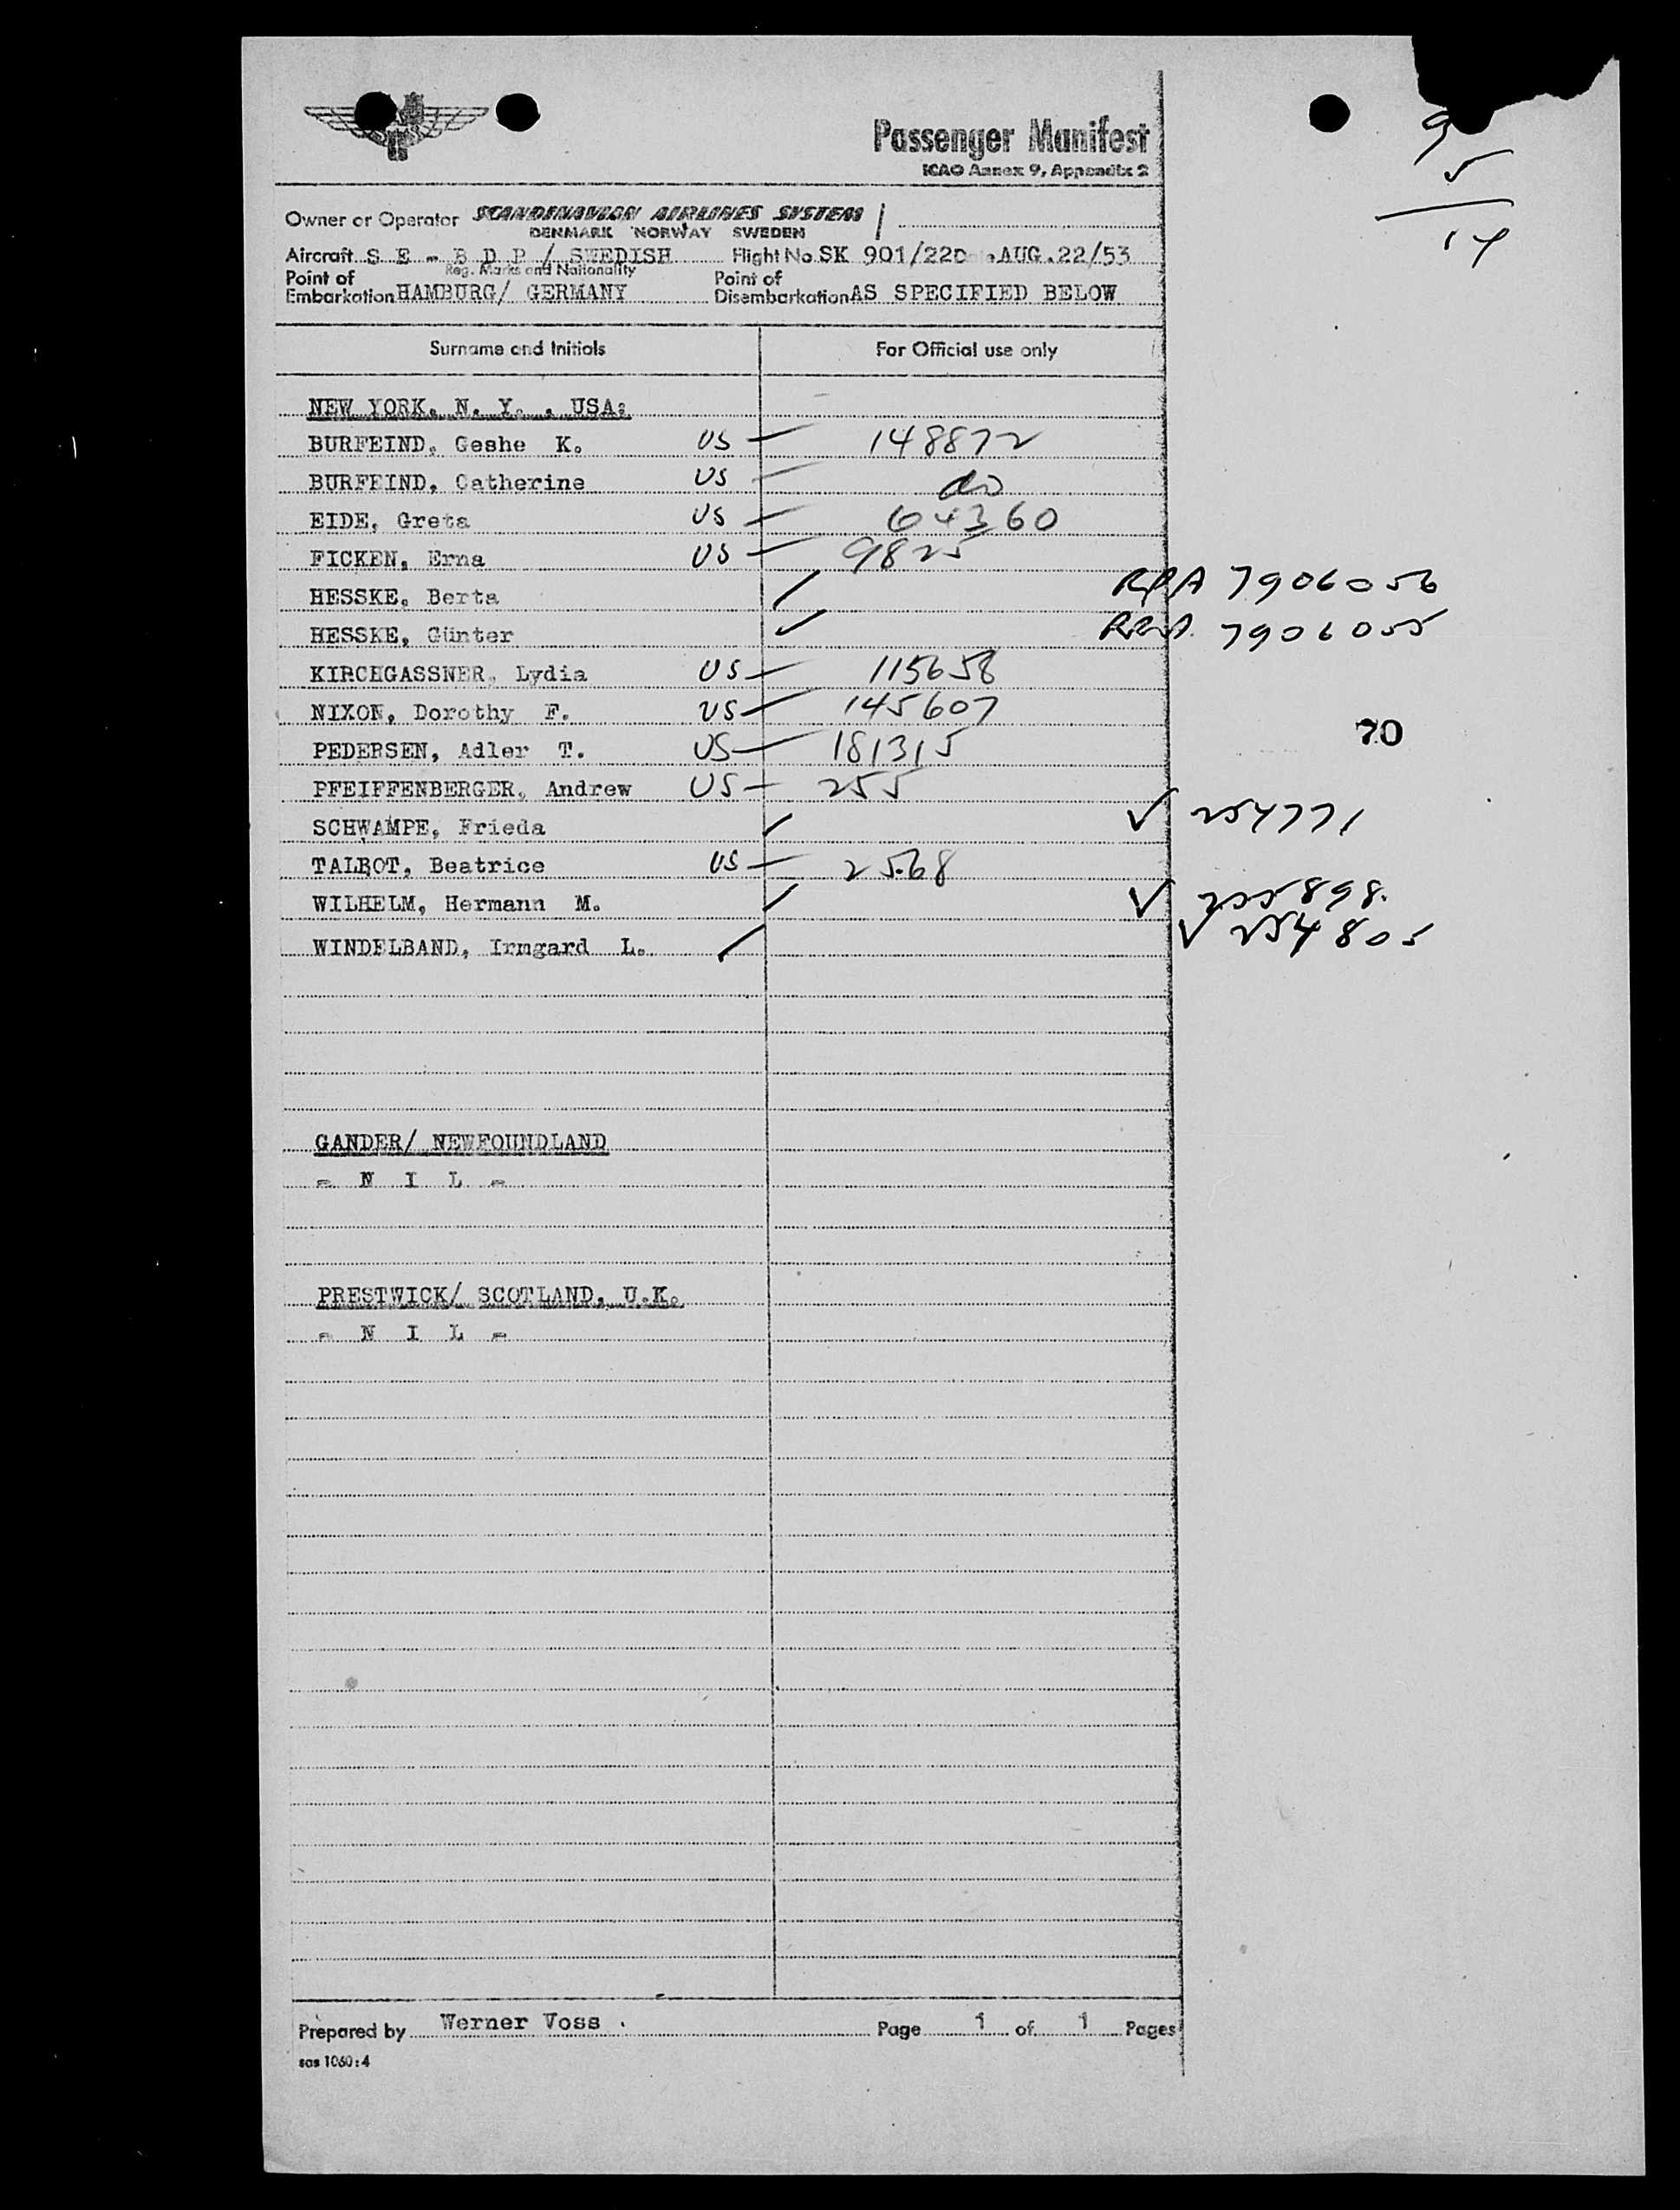 Passenger Manifest
ICAO Annex 9, Appendix 2
9
5
14
Owner or Operator SCANDINAVIAN AIRLINES SYSTEM
DENMARK NORWAY SWEDEN
Aircraft S E - B D P / SWEDISH Flight No. SK 901/22D AUG.22/53
Reg. Marks and Nationality
Point of Embarkation HAMBURG/ GERMANY Point of Disembarkation AS SPECIFIED BELOW
Surname and Initials For Official use only
NEW YORK, N. Y. , USA:
BURFEIND, Geshe K. US 148872
BURFEIND, Catherine US do
EIDE, Greta US 64360
FICKEN, Erna US 9825
HESSKE, Berta RRA 7906056
HESSKE, Günter RRA 7906055
KIRCHGASSNER, Lydia US 115658
NIXON, Dorothy F. US 145607
70
PEDERSEN, Adler T. US 181315
PFEIFFENBERGER, Andrew US 255
SCHWAMPE, Frieda 254771
TALBOT, Beatrice US 2568
WILHELM, Hermann M. 255898
WINDELBAND, Irmgard L. 254805
GANDER/ NEWFOUNDLAND
- N I L -
PRESTWICK/ SCOTLAND, U.K.
- N I L -
Prepared by Werner Voss . Page 1 of 1 Pages
sas 1060:4